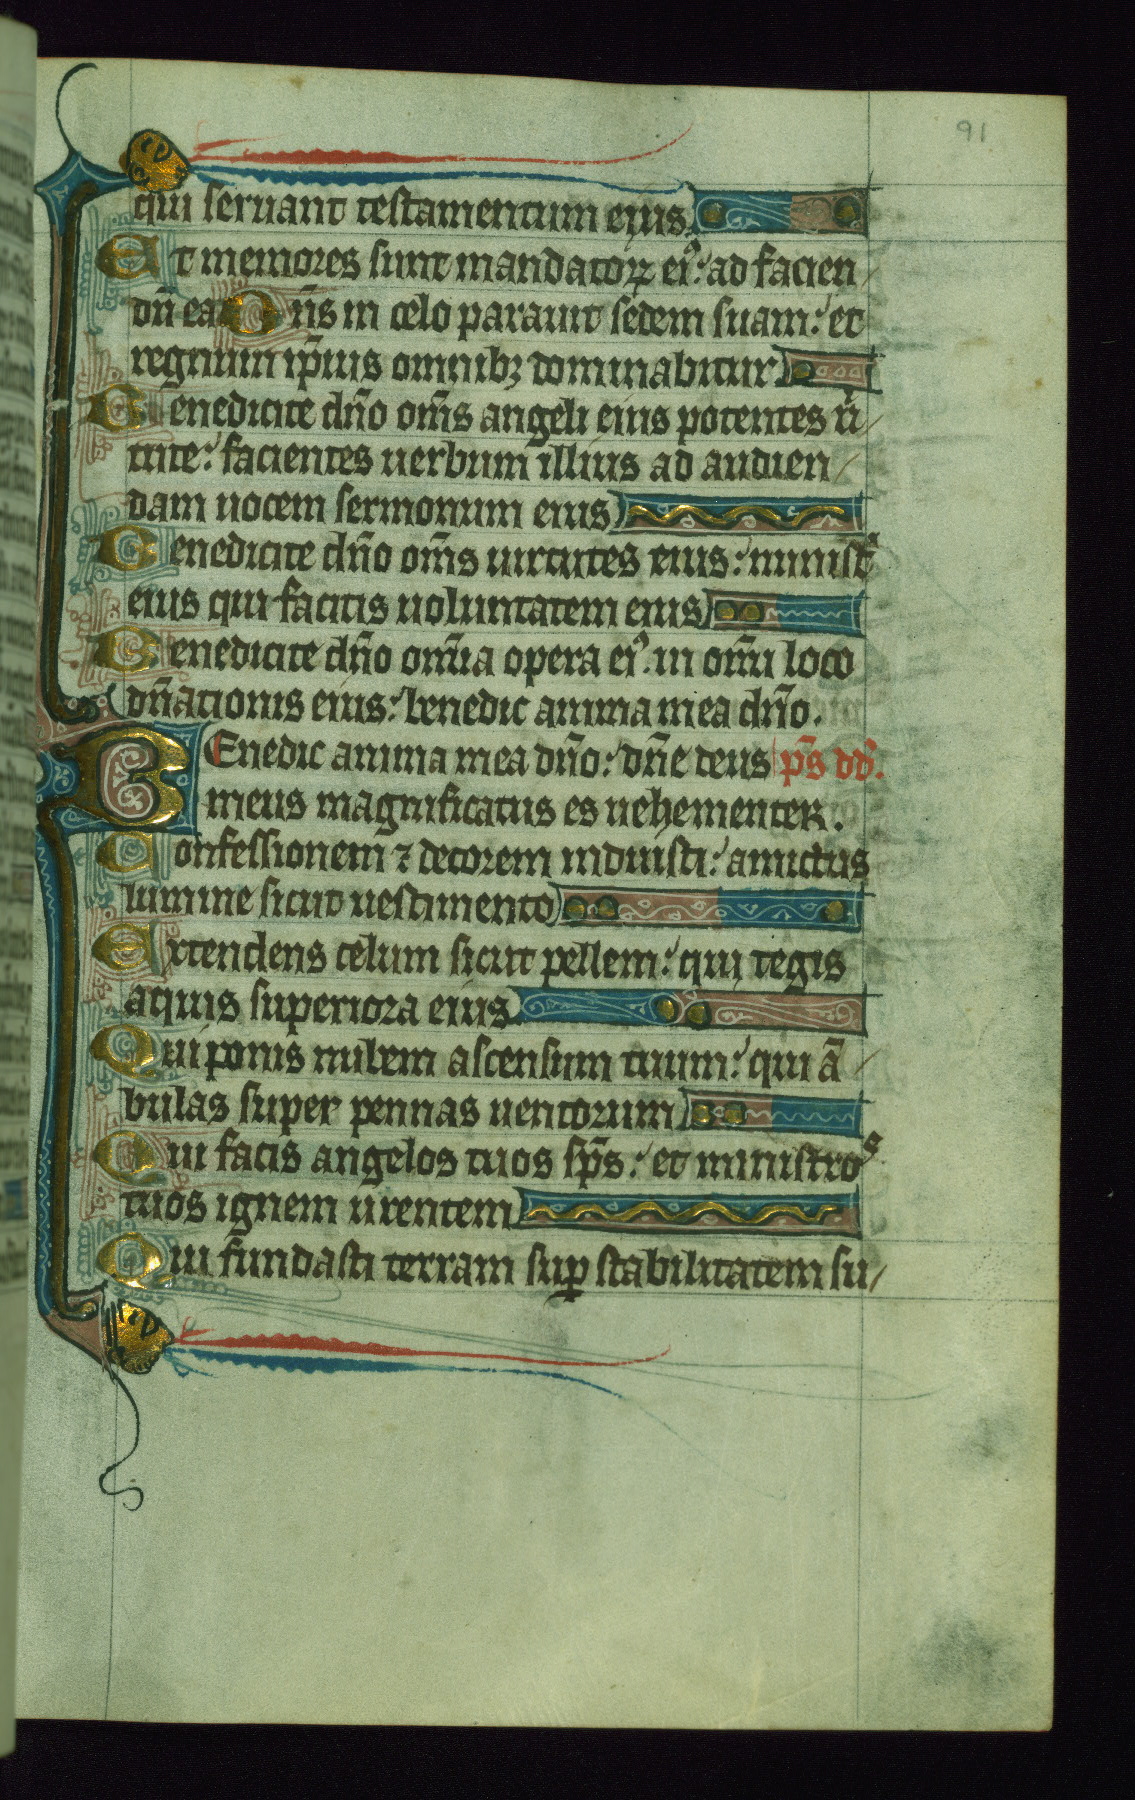 91
qui seruant testamentum eius.
Et memores sunt mandatoꝝ eiꝰ: ad facien
dū ea Dn̄s in celo parauit sedem suam: et
regnum ip̄ius omnibꝫ dominabitur
Benedicite dn̄o om̄s angeli eius potentes ū
tute: facientes uerbum illius ad audien
dam uocem sermonum eius
Benedicite dn̄o om̄s uirtutes eius: minist
eius qui facitis uoluntatem eius
Benedicite dn̄o om̄ia opera eiꝰ. in om̄i loco
dn̄ationis eius: benedic anima mea dn̄o.
BEnedic anima mea dn̄o: dn̄e deus p̄s dd.
meus magnificatus es uehementer.
Confessionem ⁊ decorem induisti: amictus
lumine sicut uestimento
Extendens celum sicut pellem: qui tegis
aquis superiora eius
Qui ponis nubem ascensum tuum: qui ā
bulas super pennas uentorum
Qui facis angelos tuos sp̄s: et ministros
tuos ignem urentem
Qui fundasti terram suꝑ stabilitatem su